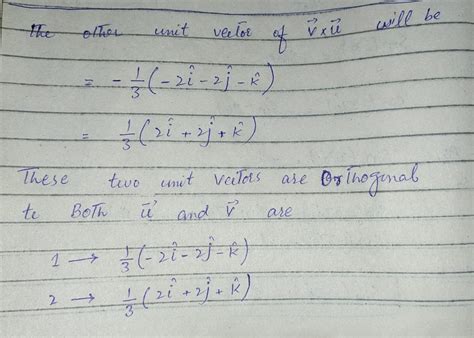 The other unit vector of v⃗ x u⃗ will be
= -1/3 (-2î - 2ĵ - k̂)
= 1/3 (2î + 2ĵ + k̂)
These two unit vectors are Orthogonal
to Both u⃗ and v⃗ are
1 → 1/3 (-2î - 2ĵ - k̂)
2 → 1/3 (2î + 2ĵ + k̂)